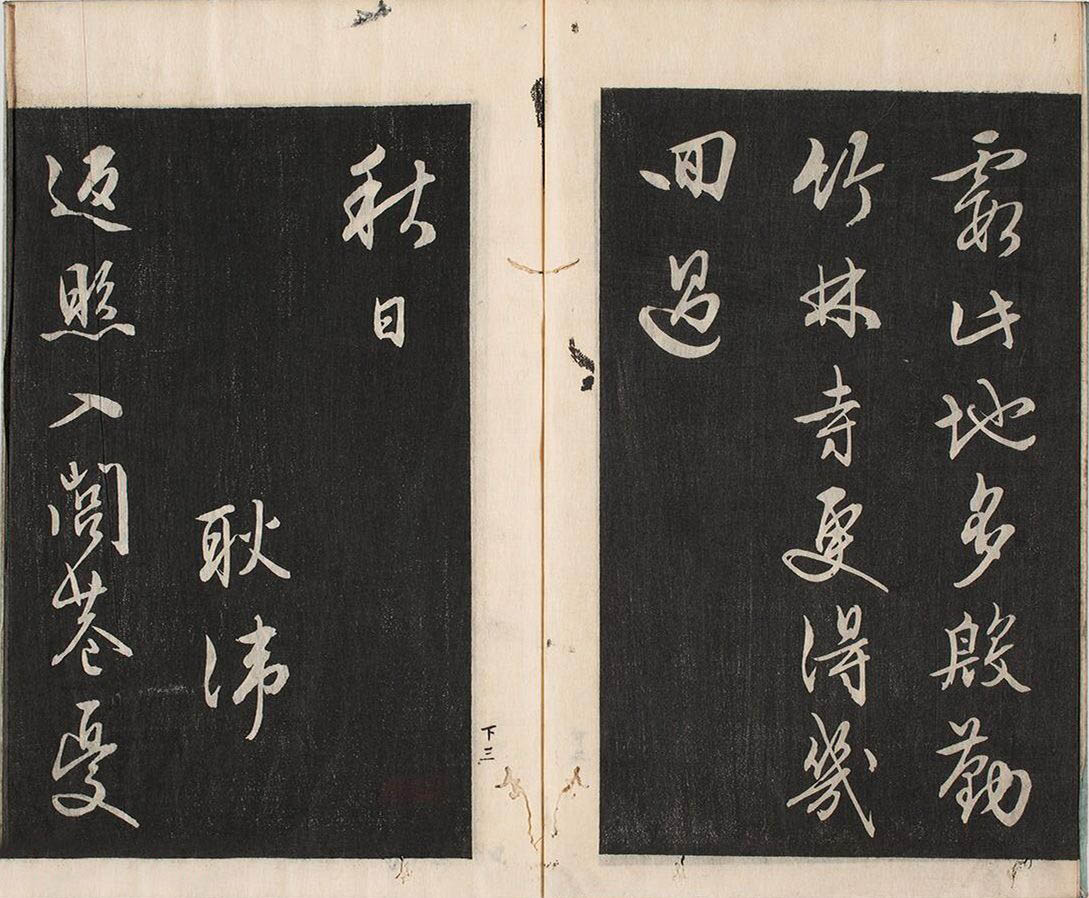 霞此地多殷勤
竹林寺更得幾
回過
秋日
耿湋
返照入閭巷憂
下三